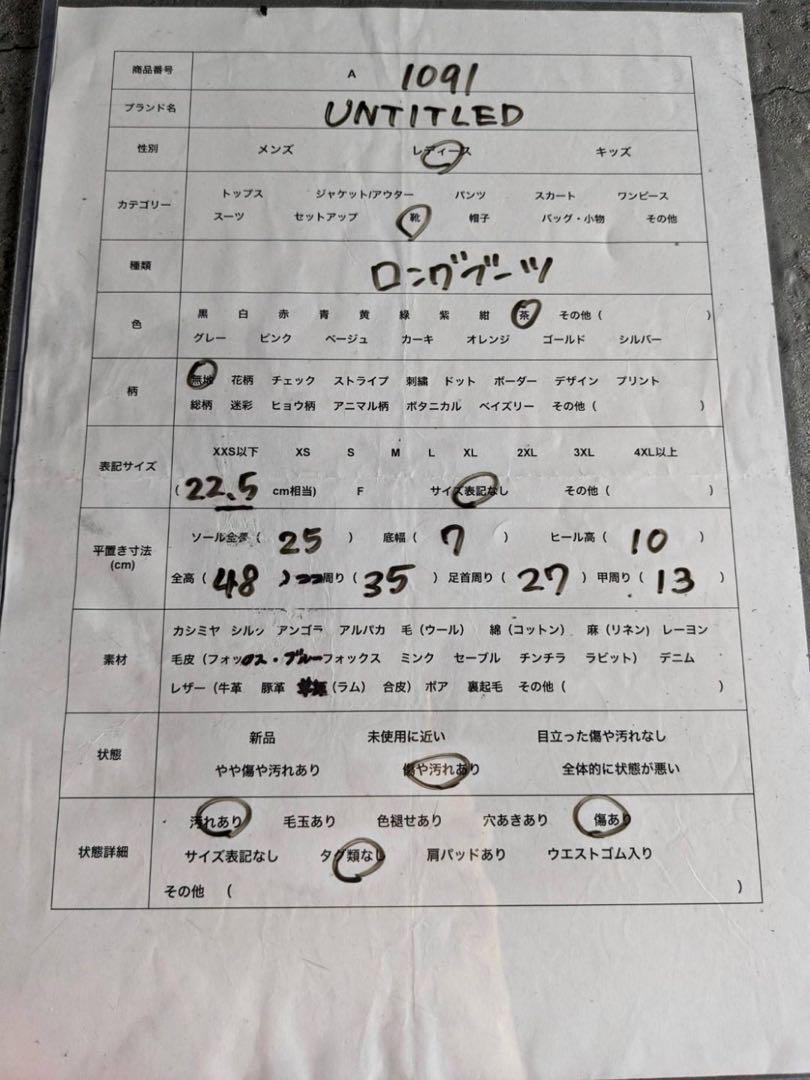 商品番号 A 1091
ブランド名 UNTITLED
性別 メンズ レディース キッズ
カテゴリー トップス ジャケット/アウター パンツ スカート ワンピース
スーツ セットアップ 靴 帽子 バッグ・小物 その他
種類 ロングブーツ
色 黒 白 赤 青 黄 緑 紫 紺 茶 その他 ( )
グレー ピンク ベージュ カーキ オレンジ ゴールド シルバー
柄 無地 花柄 チェック ストライプ 刺繍 ドット ボーダー デザイン プリント
総柄 迷彩 ヒョウ柄 アニマル柄 ボタニカル ペイズリー その他 ( )
表記サイズ XXS以下 XS S M L XL 2XL 3XL 4XL以上
( 22.5 cm相当) F サイズ表記なし その他 ( )
平置き寸法 (cm) ソール全長 ( 25 ) 底幅 ( 7 ) ヒール高 ( 10 )
全高 ( 48 ) 周り ( 35 ) 足首周り ( 27 ) 甲周り ( 13 )
素材 カシミヤ シルク アンゴラ アルパカ 毛 (ウール) 綿 (コットン) 麻 (リネン) レーヨン
毛皮 (フォックス・ブルーフォックス ミンク セーブル チンチラ ラビット) デニム
レザー (牛革 豚革 (ラム) 合皮) ボア 裏起毛 その他 ( )
状態 新品 未使用に近い 目立った傷や汚れなし
やや傷や汚れあり 傷や汚れあり 全体的に状態が悪い
状態詳細 汚れあり 毛玉あり 色褪せあり 穴あきあり 傷あり
サイズ表記なし タグ類なし 肩パッドあり ウエストゴム入り
その他 ( )